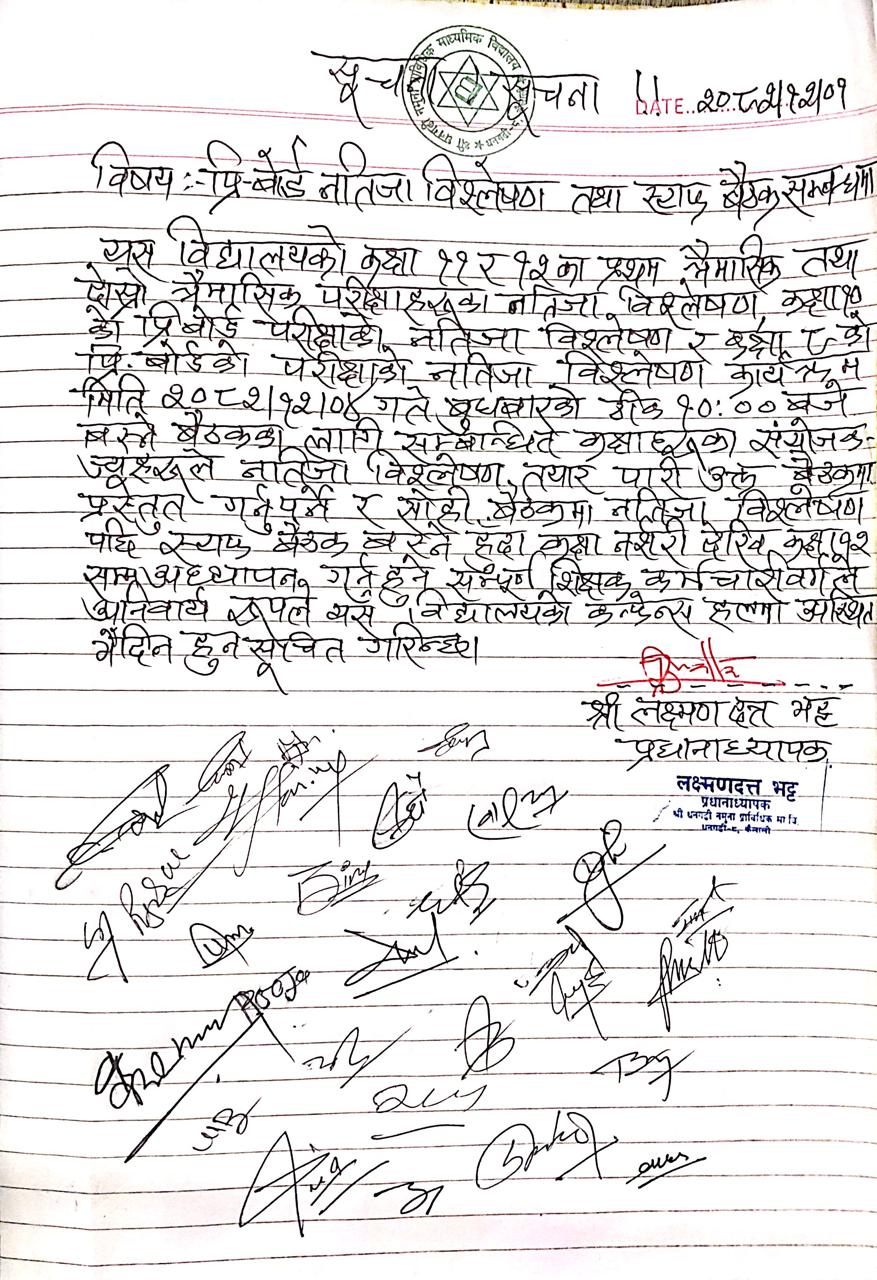 सूचना सूचना !!
DATE..२०८२/१२/०१
विषय :- प्रि-बोर्ड नतिजा विश्लेषण तथा स्टाफ बैठक सम्बन्धमा
यस विद्यालयको कक्षा ११ र १२ का प्रथम त्रैमासिक तथा
दोस्रो त्रैमासिक परीक्षाहरूका नतिजा विश्लेषण कक्षा १०
को प्रि बोर्ड परीक्षाको नतिजा विश्लेषण र कक्षा ८ को
प्रि. बोर्डको परीक्षाको नतिजा विश्लेषण कार्यक्रम
मिति २०८२/१२/०४ गते बुधबारको ठीक १०:०० बजे
बस्ने बैठकका लागि सम्बन्धित कक्षाहरूका संयोजक-
ज्यूहरूले नतिजा विश्लेषण तयार पारी उक्त बैठकमा
प्रस्तुत गर्नुपर्ने र सोही बैठकमा नतिजा विश्लेषण
पछि स्टाफ बैठक बस्ने हुँदा कक्षा नर्शरी देखि कक्षा १२
सम्म अध्यापन गर्नु हुने सम्पूर्ण शिक्षक कर्मचारीवर्गले
अनिवार्य रूपले यस विद्यालयको कन्फ्रेन्स हलमा उपस्थित
भैदिन हुन सूचित गरिन्छ।
श्री लक्ष्मण दत्त भट्ट
प्रधानाध्यापक
लक्ष्मणदत्त भट्ट
प्रधानाध्यापक
श्री धनगढी नमुना प्राविधिक मा.वि.
धनगढी-८, कैलाली